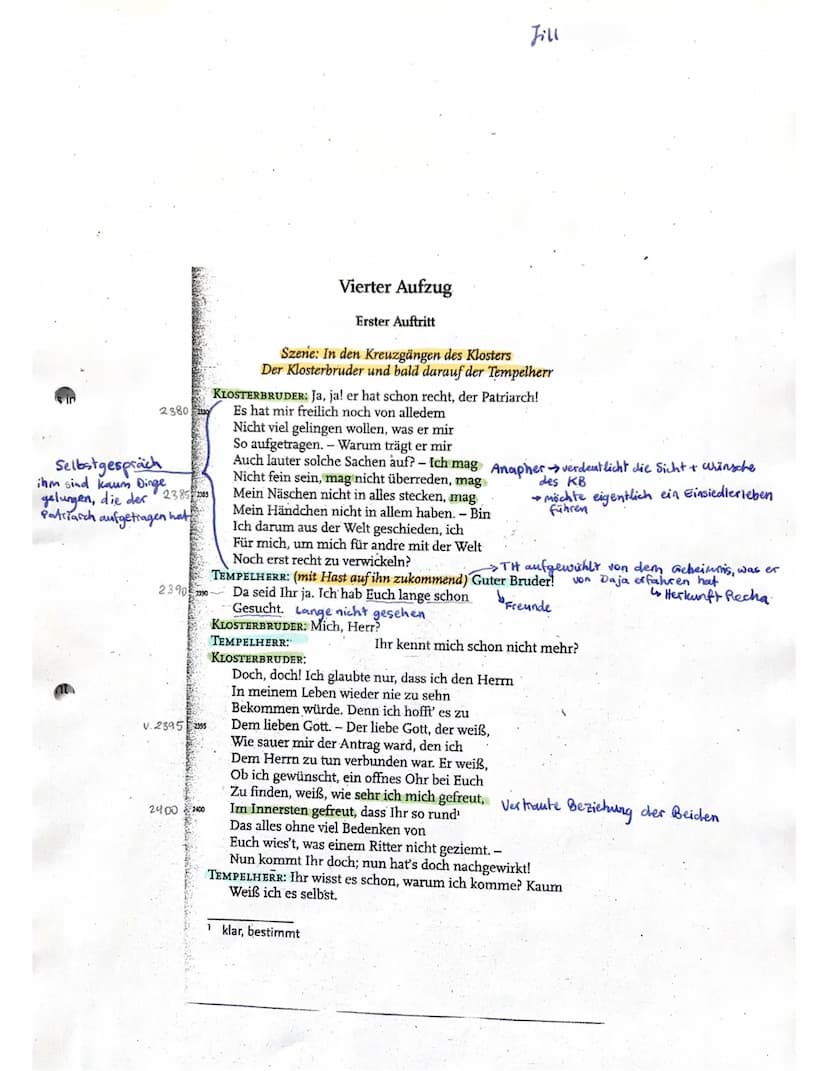 Jill
Vierter Aufzug
Erster Auftritt
Szene: In den Kreuzgängen des Klosters
Der Klosterbruder und bald darauf der Tempelherr
KLOSTERBRUDER: Ja, ja! er hat schon recht, der Patriarch!
2380 Es hat mir freilich noch von alledem
Nicht viel gelingen wollen, was er mir
So aufgetragen. – Warum trägt er mir
Auch lauter solche Sachen auf? – Ich mag
Nicht fein sein, mag nicht überreden, mag
2385 2385 Mein Näschen nicht in alles stecken, mag
Mein Händchen nicht in allem haben. – Bin
Ich darum aus der Welt geschieden, ich
Für mich, um mich für andre mit der Welt
Noch erst recht zu verwickeln?
Selbstgespräch
ihm sind kaum Dinge
gelungen, die der
Patriarch aufgetragen hat
Anapher → verdeutlicht die Sicht + Wünsche
des KB
→ möchte eigentlich ein Einsiedlerleben
führen
TEMPELHERR: (mit Hast auf ihn zukommend) Guter Bruder!
2390 2390 Da seid Ihr ja. Ich hab Euch lange schon
Gesucht. Lange nicht gesehen
→ TH aufgewühlt von dem Geheimnis, was er
von Daja erfahren hat
↳ Herkunft Recha
↳ Freunde
KLOSTERBRUDER: Mich, Herr?
TEMPELHERR: Ihr kennt mich schon nicht mehr?
KLOSTERBRUDER:
Doch, doch! Ich glaubte nur, dass ich den Herrn
In meinem Leben wieder nie zu sehn
Bekommen würde. Denn ich hofft' es zu
V. 2395 2395 Dem lieben Gott. – Der liebe Gott, der weiß,
Wie sauer mir der Antrag ward, den ich
Dem Herrn zu tun verbunden war. Er weiß,
Ob ich gewünscht, ein offnes Ohr bei Euch
Zu finden, weiß, wie sehr ich mich gefreut,
2400 2400 Im Innersten gefreut, dass Ihr so rund¹
Das alles ohne viel Bedenken von
Euch wies't, was einem Ritter nicht geziemt. –
Nun kommt Ihr doch; nun hat's doch nachgewirkt!
Vertraute Beziehung der Beiden
TEMPELHERR: Ihr wisst es schon, warum ich komme? Kaum
Weiß ich es selbst.
¹ klar, bestimmt